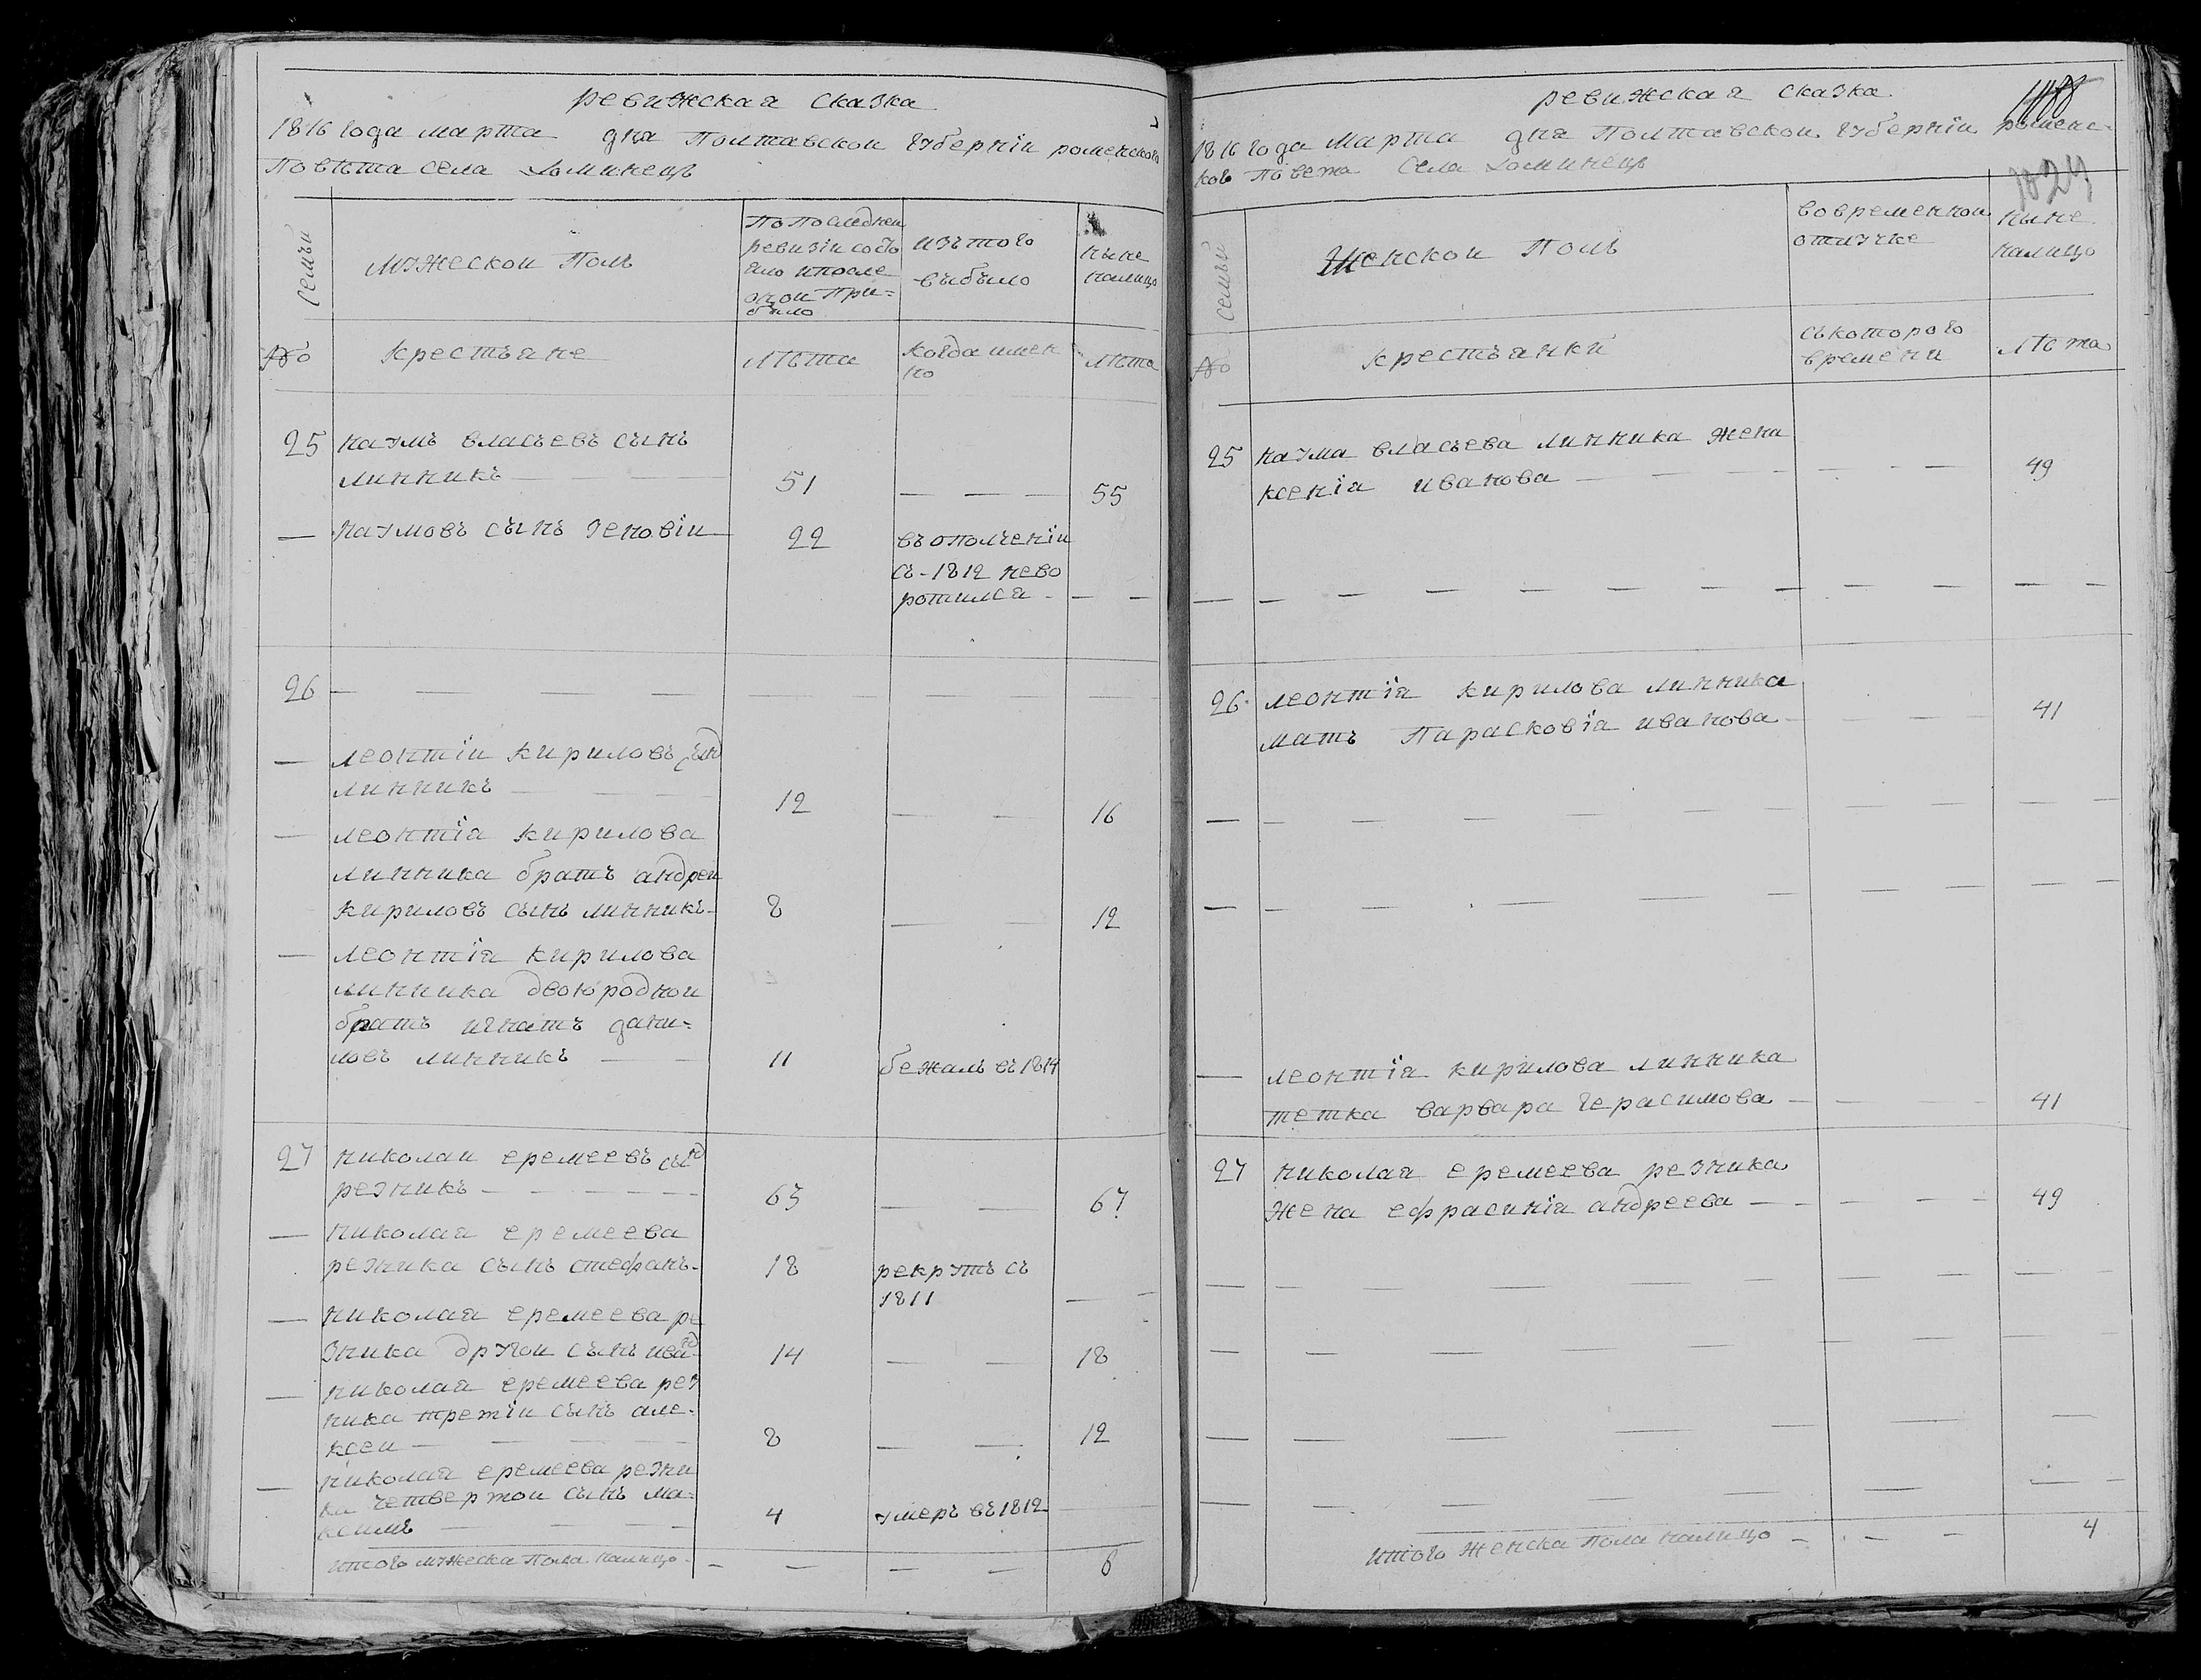 ревижская сказка
1816 года марта дня Полтавской губернїи роменского
Повѣта села Хоминецъ
семьи
Мужеской Полъ
По Последней
ревизїи состо
яло ипосле
оной При=
было
изътого
выбыло
ныне
налицо
№
крестьяне
лѣта
когда имен
но
лѣта
25 наумъ власьевъ сынъ
линникъ 51 — — — 55
— наумовъ сынъ зеновїи 22 въополченїи
съ-1812 нево
ротился - — —
26 — — — —
— леонтїи кириловъ сын
линникъ 12 — — 16
— леонтїя кирилова
линника братъ андреи
кириловъ сынъ линникъ- 8 — — 12
— леонтїя кирилова
линника двоюродной
братъ игнатъ дани=
ловъ линникъ — — 11 бежалъ въ 1814
27 николаи еремеевъ сын
резникъ — 63 — — 67
— николая еремеева
резника сынъ стефанъ- 18 рекрутъ съ
1811 — —
— николая еремеева ре
зника другои сынъ иван 14 — — 18
— николая еремеева рез
ника третїи сынъ але=
ксеи — 8 — — 12
— николая еремеева резни
ка четвертои сынъ ма=
ксимъ — 4 умеръ въ 1812
итого мужеска Пола налицо - — — — — 6
ревижская сказка
1024
1816 года марта дня Полтавской губернїи роменс=
кого Повета Села Хоминецъ
семьи
Женской Полъ
вовременной
отлучке
ныне
налицо
№
крестьянки
скоторого
времени
лѣта
25 наума власьева линника жена
ксенїя иванова — — - — 49
— — — — — — — — — —
26. леонтїя кирилова линника
мать Парасковїя иванова — — — 41
— — — — — — — — — —
— — — — — — — — — —
— леонтїя кирилова линника
тетка варвара герасимова — — — — 41
27 николая еремеева резника
жена ефрасинїя андреева — — — — — 49
— — — — — — — — —
— — — — — — — —
— — — — — — —
— — — — — — —
итого женска пола налицо — - — - 4